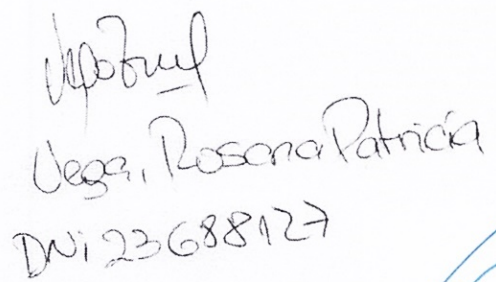 Vega, Rosana Patricia
DNi 23688127